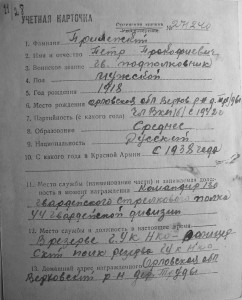 УЧЕТНАЯ КАРТОЧКА
1. Фамилия
2. Имя и отчество Петр Прокофьевич
3. Воинское звание гв. подполковник
4. Пол мужской
5. Год рождения 1918
6. Место рождения орловская обл
7. Партийность (с какого года) чл ВКП(б) с 1942г
8. Образование Среднее
9. Национальность Русский
10. С какого года в Красной Армии С 1938 года
11. Место службы (наименование части) и занимаемая должность в момент награждения Командир 130
гвардейского стрелкового полка
44 гвардейской дивизии
12. Место службы и должность в настоящее время
В резерве ГУК НКО
полк резерва ГУК НКО
13. Домашний адрес награжденного Орловская обл
р-н дер